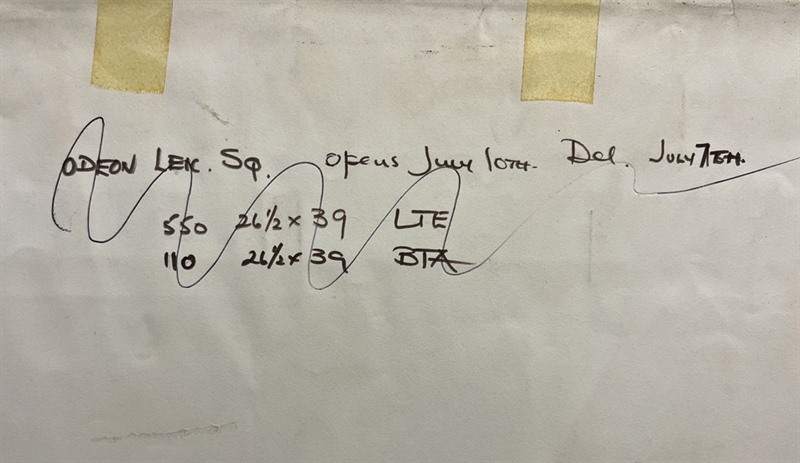 ODEON LEIC. SQ. opens July 10TH. Del. JULY 7TH.
550 26½ x 39 LTE
110 26½ x 39 BTA